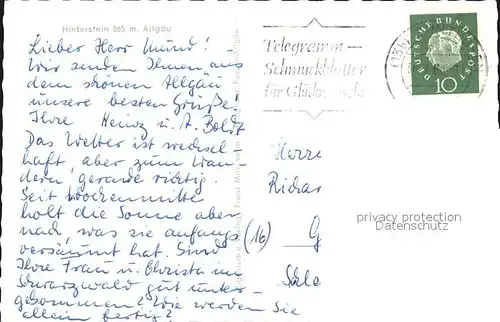 Hinterstein 865 m. Allgäu
Lieber Herr Mund!
Wir senden Ihnen aus
dem schönen Allgäu
unsere besten Grüße.
Ihre Heinz u. A. Boldt
Das Wetter ist wechsel-
haft, aber zum Wan-
dern gerade richtig.
Seit Wochenmitte
holt die Sonne aber
nach, was sie anfangs
versäumt hat. Sind
Ihre Frau u. Christa im
Schwarzwald gut unter-
gekommen? Wie werden Sie
allein fertig?
Telegramm —
Schmuckblätter
für
DEUTSCHE BUNDESPOST
10
Herrn
Richar
(16) G
Schle
privacy protection
Datenschutz
Franz